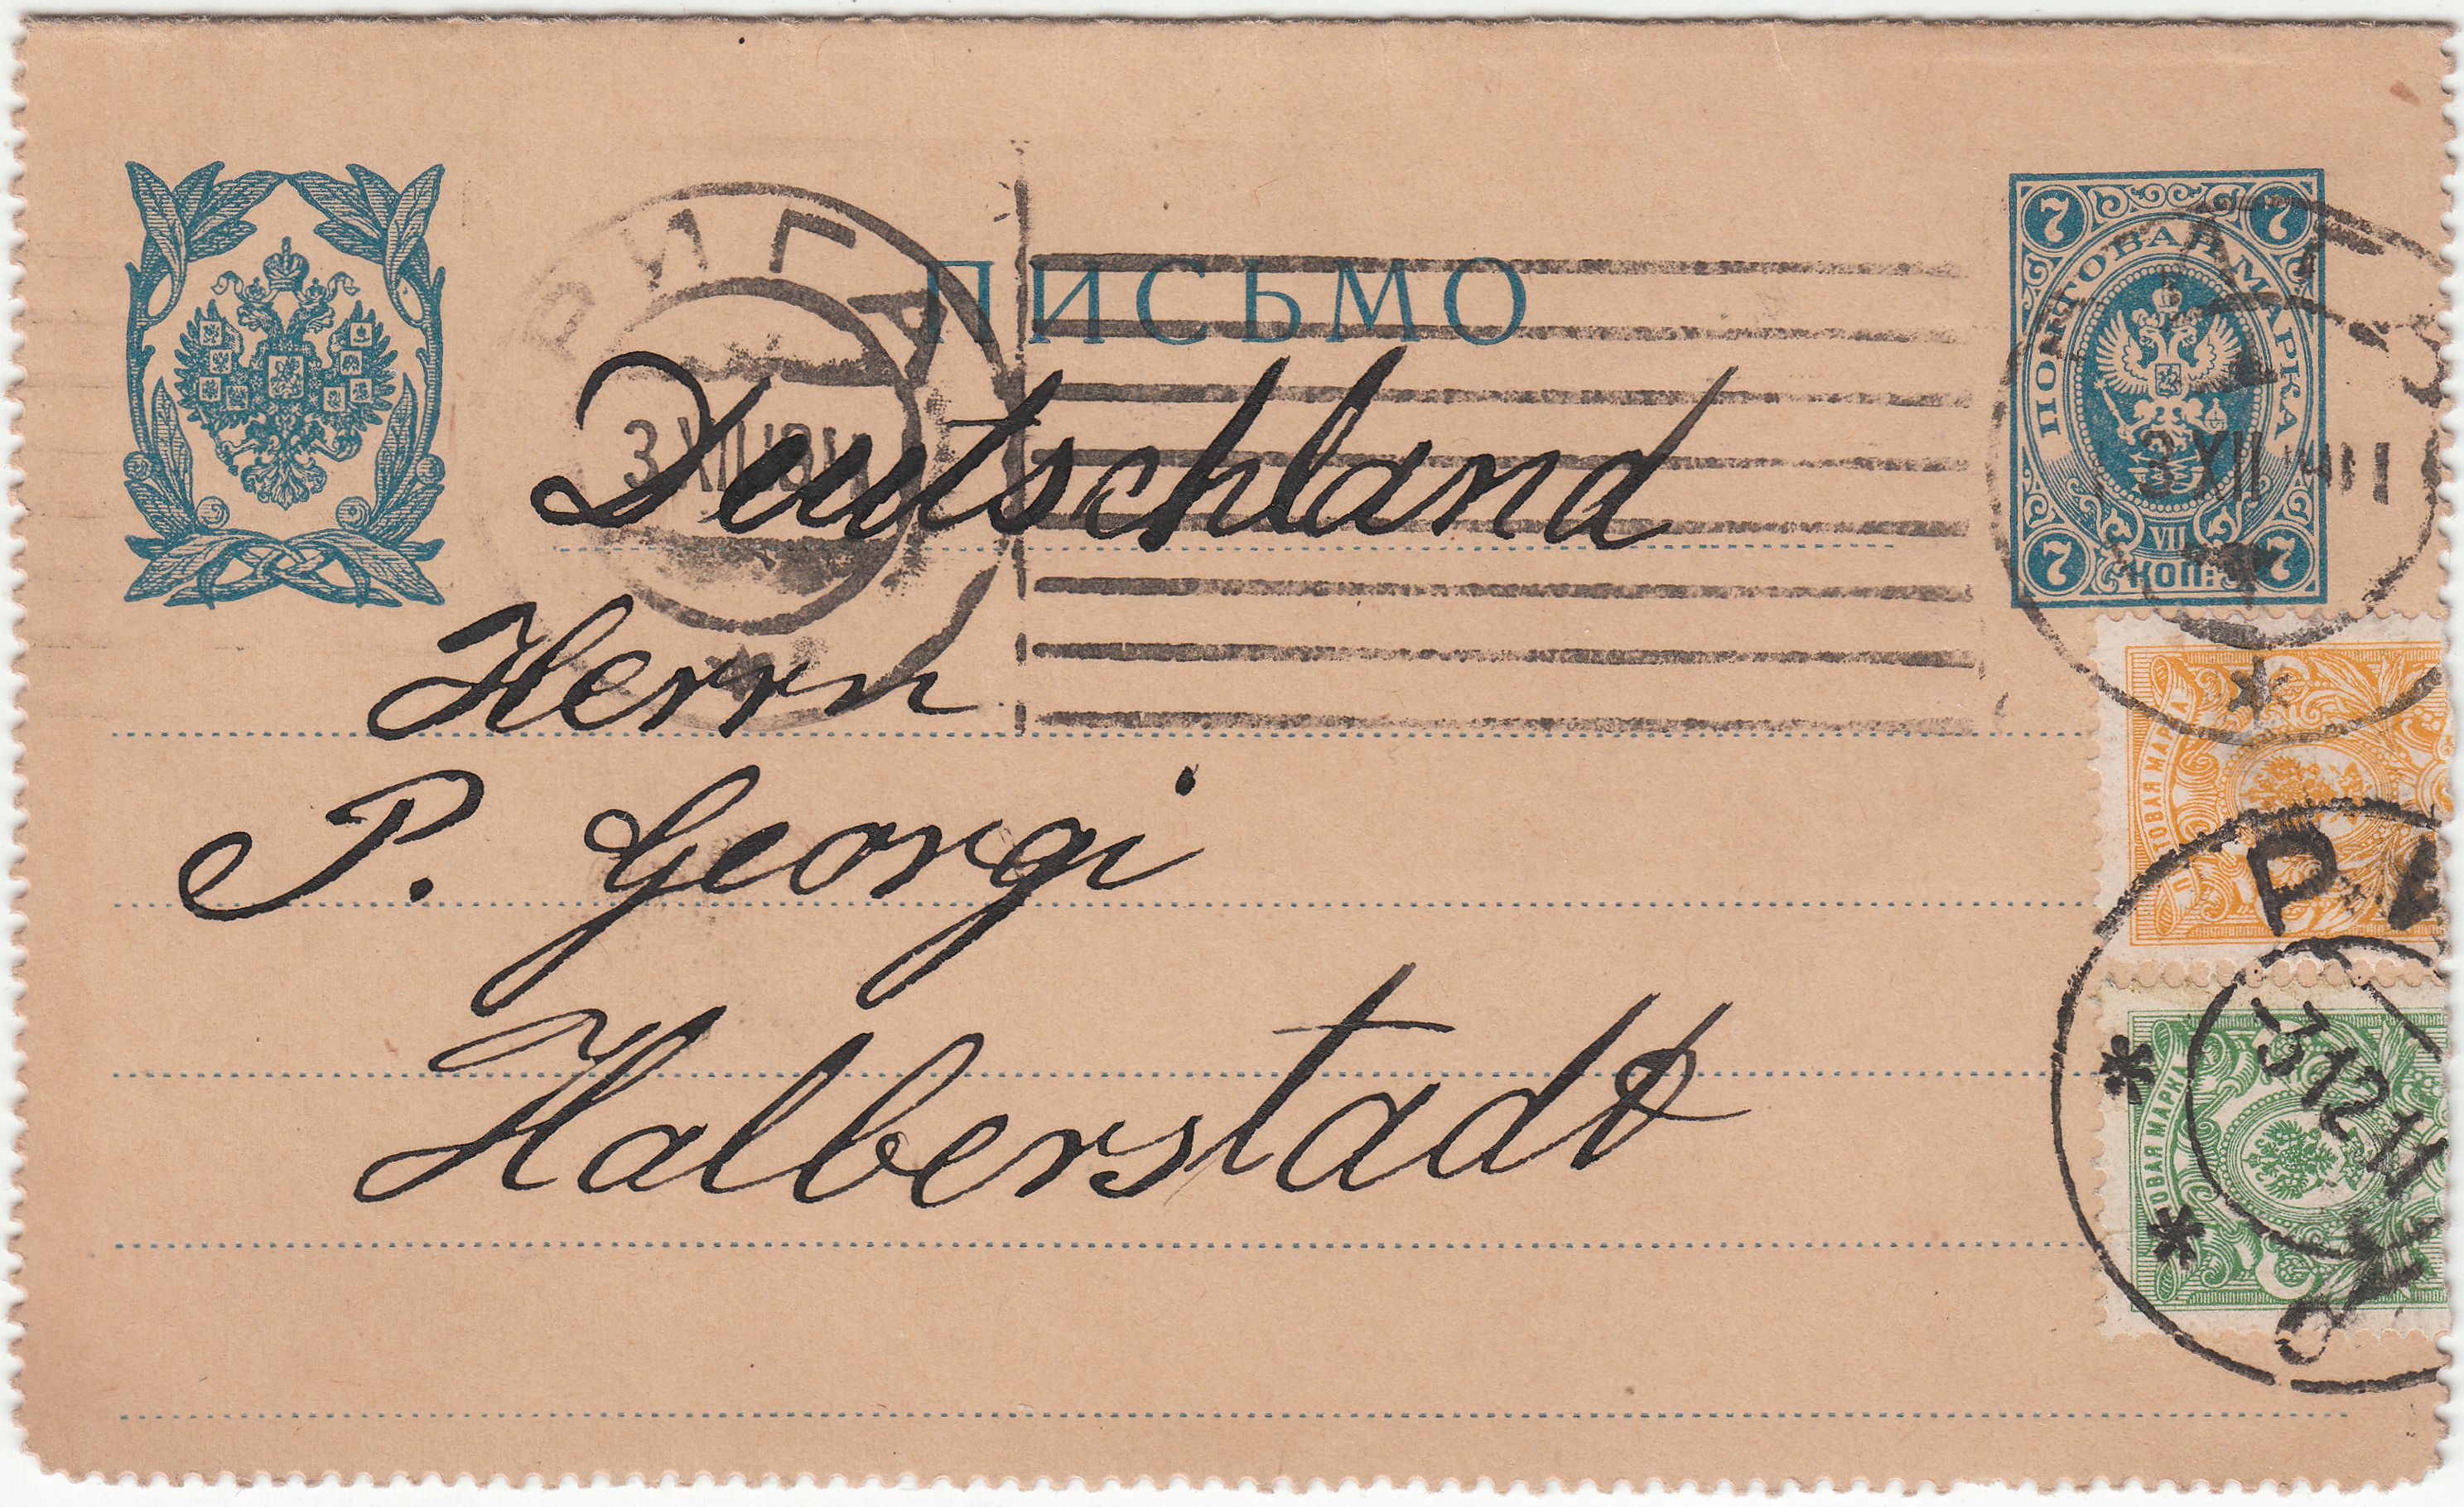 РИГА
ПИСЬМО
7 7
ПОЧТОВАЯ МАРКА
3 XII
3 XII
VII
7 КОП. 7
Deutschland
Herrn
P. Georgi
Halberstadt
ПОЧТОВАЯ МАРКА
Р
-3 12 11
ПОЧТОВАЯ МАРКА